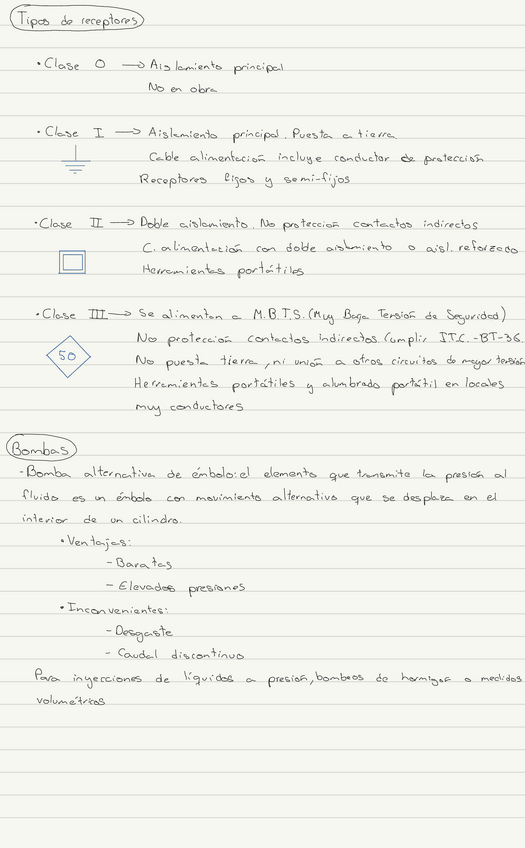 Tipos de receptores
• Clase 0 → Aislamiento principal
No en obra
• Clase I → Aislamiento principal. Puesta a tierra
Cable alimentación incluye conductor de protección
Receptores fijos y semi-fijos
• Clase II → Doble aislamiento. No protección contactos indirectos
C. alimentación con doble aislamiento o aisl. reforzado
Herramientas portátiles
• Clase III → Se alimentan a M.B.T.S. (Muy Baja Tensión de Seguridad)
No protección contactos indirectos Cumplir ITC.-BT-36.
50
No puesta tierra, ni unión a otros circuitos de mayor tensión
Herramientas portátiles y alumbrado portátil en locales
muy conductores
Bombas
- Bomba alternativa de émbolo: el elemento que transmite la presión al
fluido es un émbolo con movimiento alternativo que se desplaza en el
interior de un cilindro.
• Ventajas:
- Baratas
- Elevadas presiones
• Inconvenientes:
- Desgaste
- Caudal discontinuo
Para inyecciones de líquidos a presión, bombeos de hormigón o medidos
volumétricos